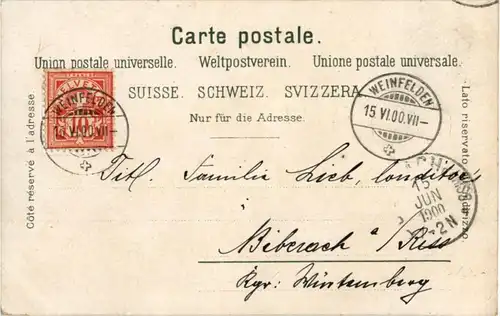 Carte postale.
Union postale universelle. Weltpostverein. Unione postale universale.
SUISSE. SCHWEIZ. SVIZZERA.
Nur für die Adresse.
Côté réservé à l'adresse
Lato riservato all'indirizzo
HELVETIA
10
WEINFELDEN
15.VI.00.VII–
WEINFELDEN
15.VI.00.VII–
15
JUN
1900
2N
Titl. Familie Lieb, Conditor
Biberach a/Riss
Kgr: Württemberg